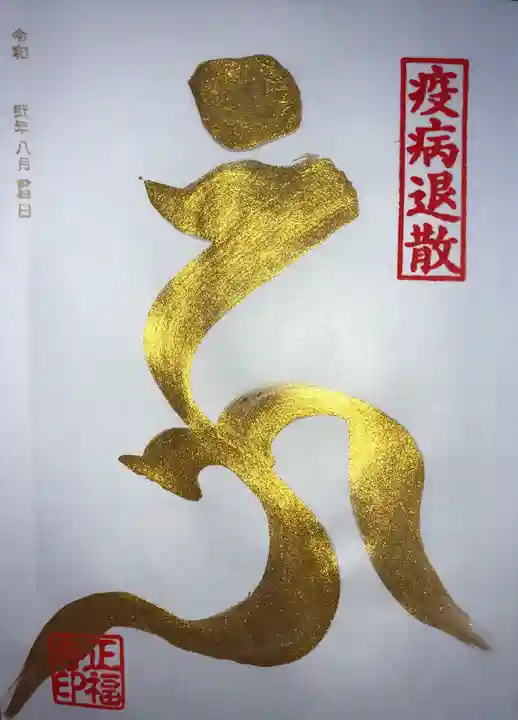 疫病退散
令和 弐年 八月 吉日
正福
寺印